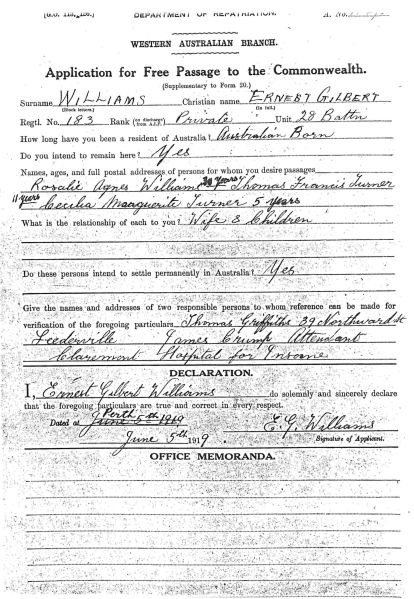 DEPARTMENT OF REPATRIATION.
WESTERN AUSTRALIAN BRANCH.
Application for Free Passage to the Commonwealth.
(Supplementary to Form 20.)
Surname WILLIAMS Christian name ERNEST GILBERT
(Block letters.) (In full.)
Regtl. No. 183 Rank (on discharge from A.I.F.) Private Unit 28 Battn
How long have you been a resident of Australia? Australian Born
Do you intend to remain here? Yes
Names, ages, and full postal addresses of persons for whom you desire passages
Rosalie Agnes Williams 39 years Thomas Francis Turner
11 years Cecilia Marguerite Turner 5 years
What is the relationship of each to you? Wife & Children
Do these persons intend to settle permanently in Australia? Yes
Give the names and addresses of two responsible persons to whom reference can be made for
verification of the foregoing particulars Thomas Griffiths 39 Northward St
Leederville James Crump Attendant
Claremont Hospital for Insane
DECLARATION.
I, Ernest Gilbert Williams do solemnly and sincerely declare
that the foregoing particulars are true and correct in every respect.
Perth
Dated at June 5th 1919 E. G. Williams
June 5th 1919 Signature of Applicant.
OFFICE MEMORANDA.